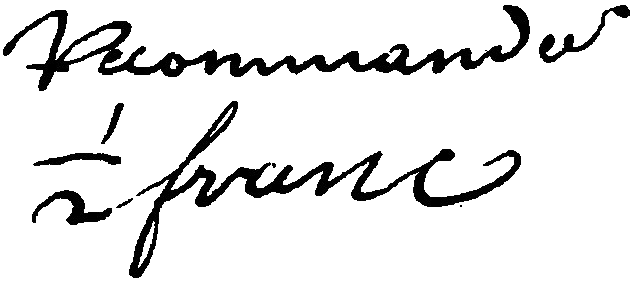 Recommander
½ franc